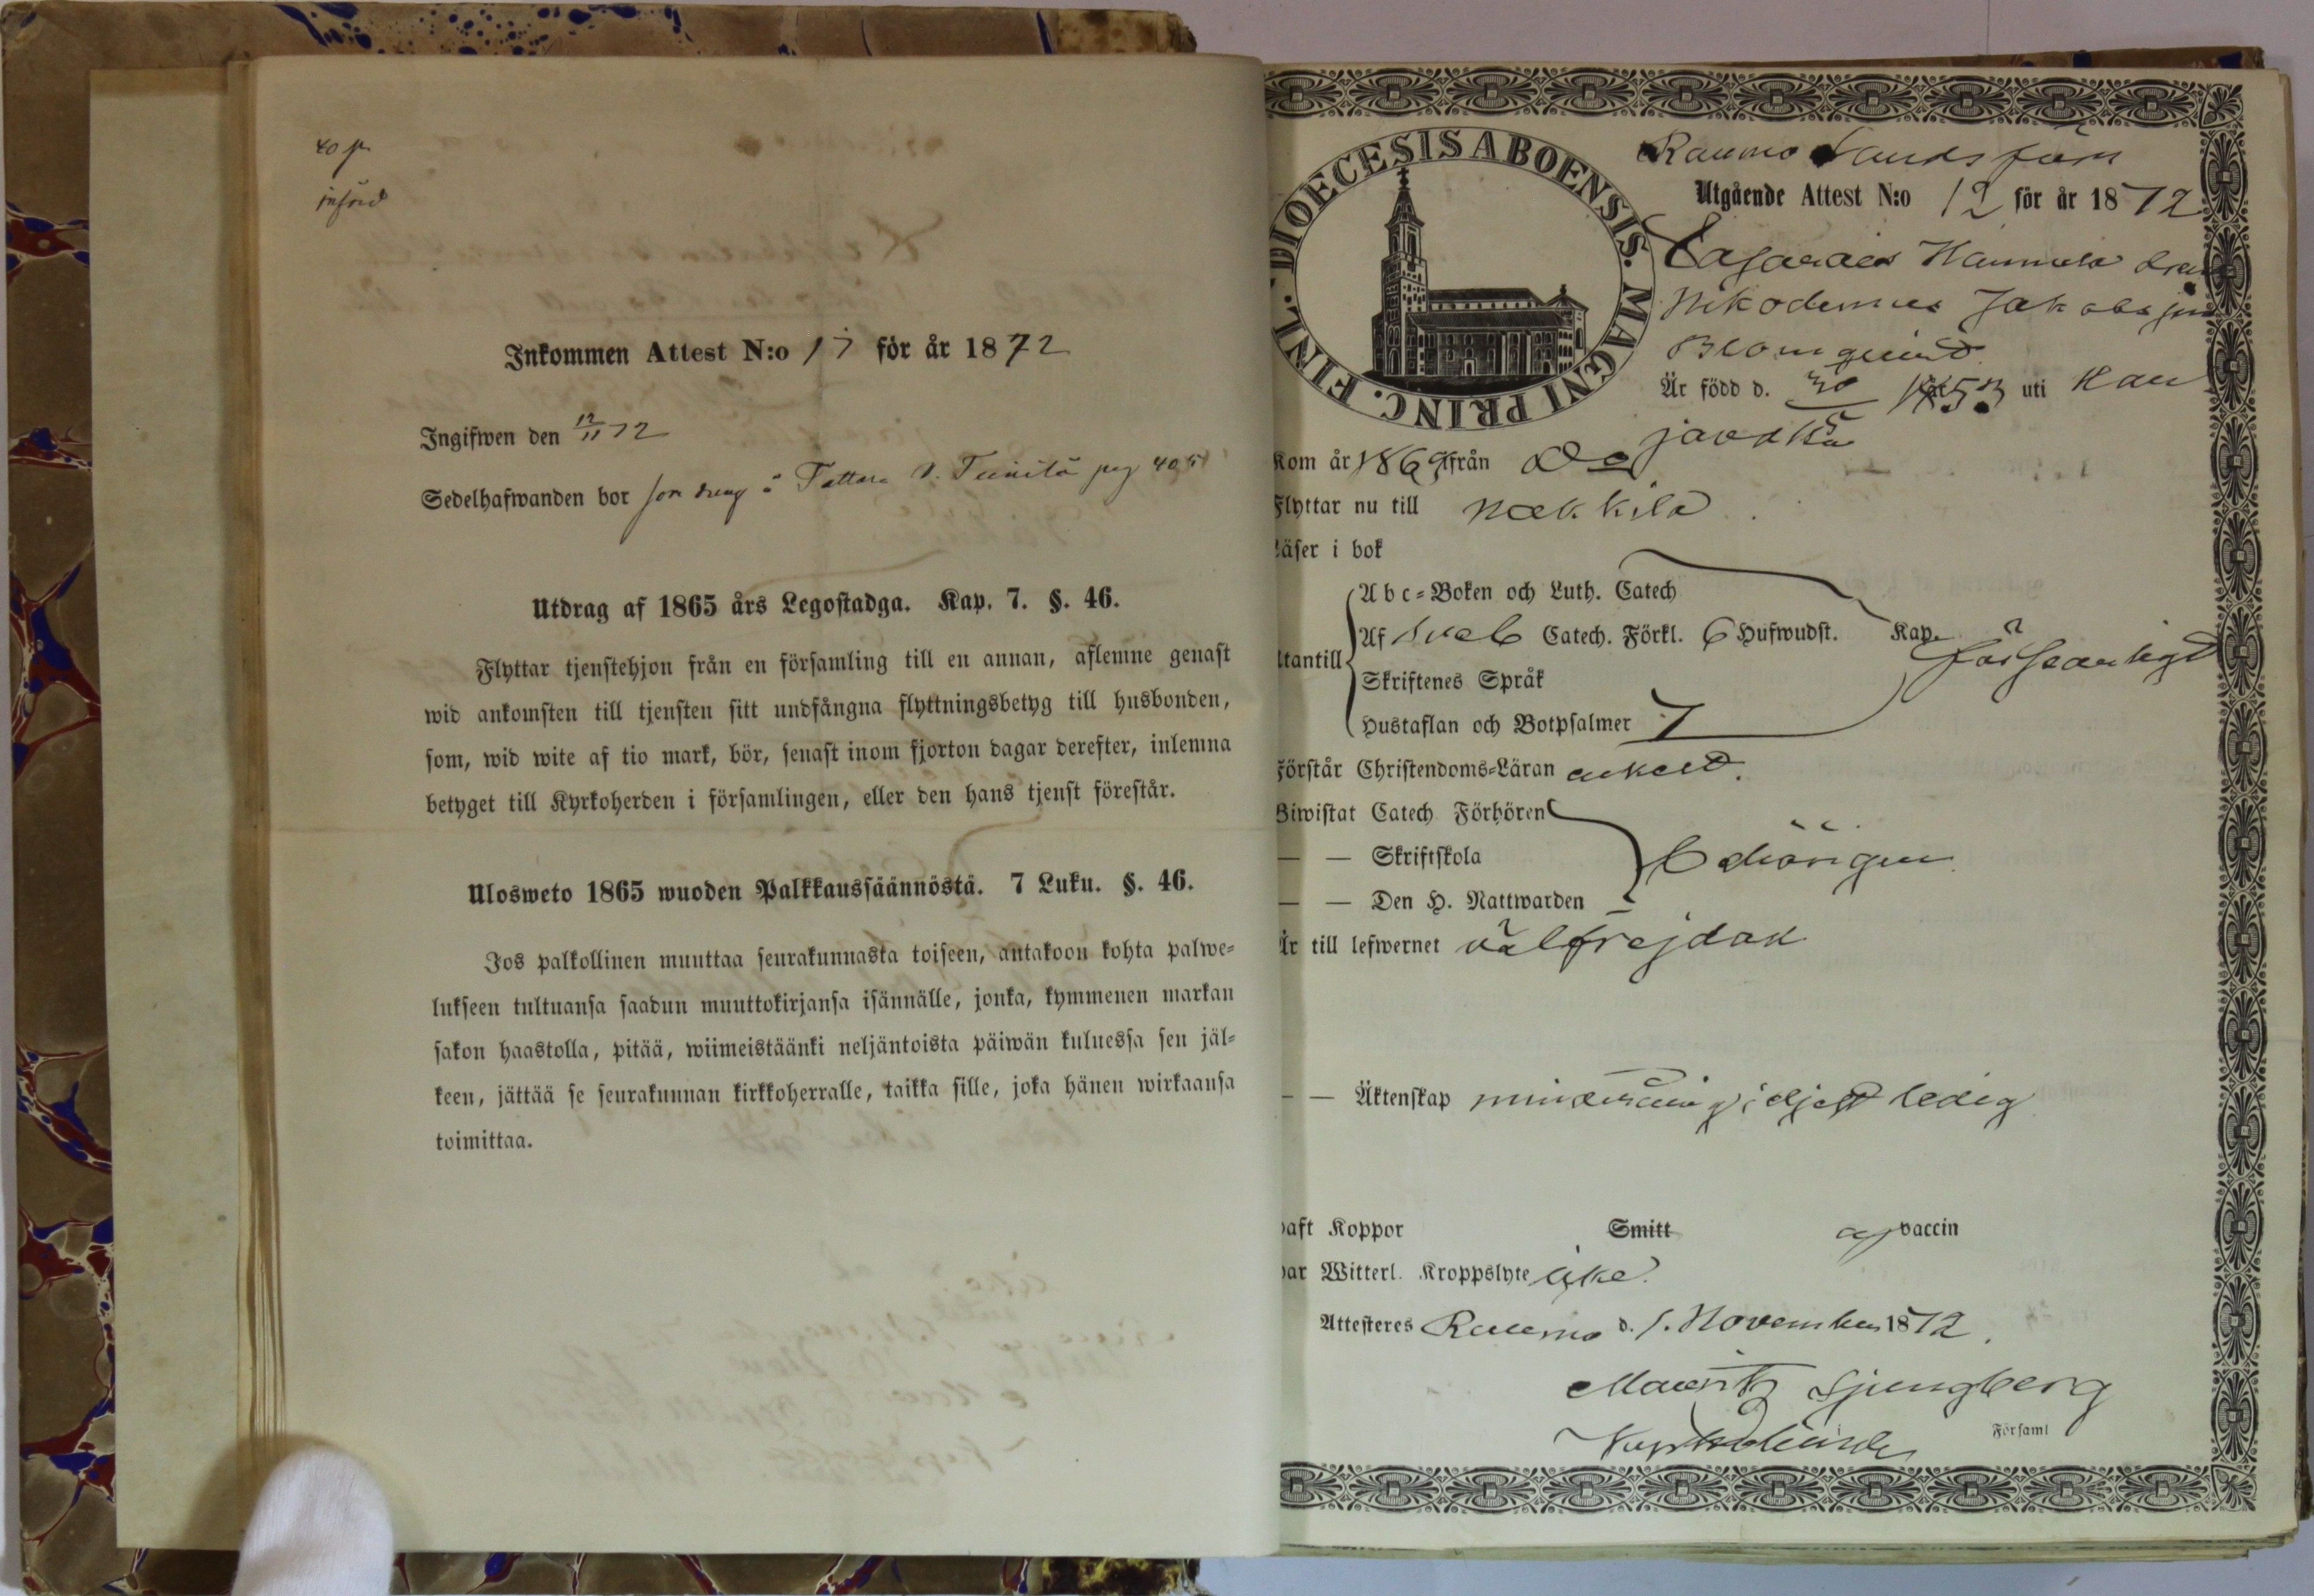 40 p
införd
Inkommen Attest N:o 17 för år 1872
Ingifwen den 12/11 72
Sedelhafwanden bor som dreng å Tattara N. Teinilä pag 405
Utdrag af 1865 års Legostadga. Kap. 7. §. 46.
Flyttar tjenstehjon från en församling till en annan, aflemne genast
wid ankomsten till tjensten sitt undfångna flyttningsbetyg till husbonden,
som, wid wite af tio mark, bör, senast inom fjorton dagar derefter, inlemna
betyget till Kyrkoherden i församlingen, eller den hans tjenst förestår.
Ulosweto 1865 wuoden Palkkaussäännöstä. 7 Luku. §. 46.
Jos palkollinen muuttaa seurakunnasta toiseen, antakoon kohta palwe=
lukseen tultuansa saadun muuttokirjansa isännälle, jonka, kymmenen markan
sakon haastolla, pitää, wiimeistäänki neljäntoista päiwän kuluessa sen jäl=
keen, jättää se seurakunnan kirkkoherralle, taikka sille, joka hänen wirkaansa
toimittaa.
DIOECESIS ABOENSIS. MAGNI PRINC. FINL.
Raumo Lands förs
Utgående Attest N:o 12 för år 1872
Hannula dren
Nikodemus Jakobsson
Blomqvist
Är född d. 30/5 1853 uti Kau
javdkä
Kom år 1869 från Do
Flyttar nu till Nakkila
Läser i bok
Utantill
Abc=Boken och Luth. Catech
Af Sveb Catech. Förkl. 6 Hufwudst. Kap.
försvarligt
Skriftenes Språk
Hustaflan och Botpsalmer 7
Förstår Christendoms=Läran enkelt.
Biwistat Catech Förhören
— — Skriftskola
behörigen
— — Den H. Nattwarden
Är till lefwernet välfrejdad
— — Äktenskap minderårig; eljest ledig
haft Koppor Smitt af vaccin
har Witterl. Kroppslyte icke.
Attesteres Raumo d. 1. November 1872.
Mauritz Ljungberg
Kyrkoherde
Församl